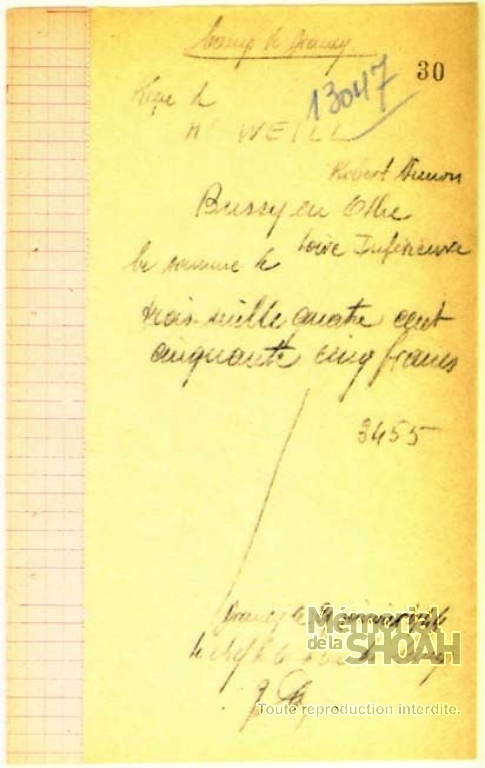 Camp de Drancy
30
13047
Reçu de
Mr WEILL
Robert Simon
Bussy en Othe
Loire Inférieure
la somme de
trois mille quatre cent
cinquante cinq francs
3455
Drancy le
Mémorial
de la SHOAH
le chef
Toute reproduction interdite.